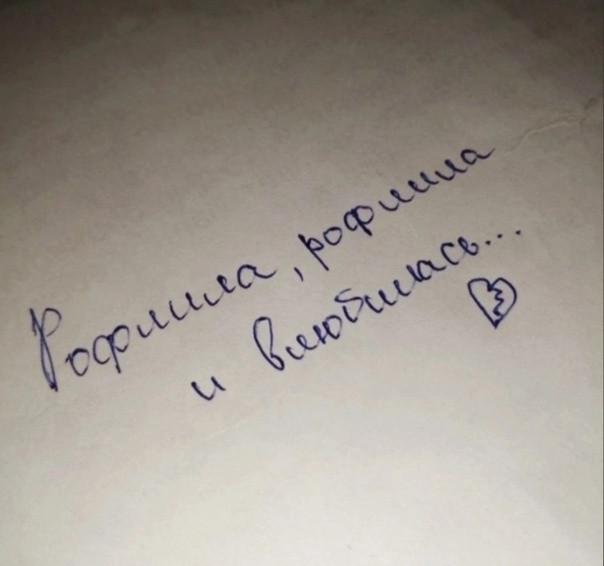 Рофлила, рофлила
и влюбилась...